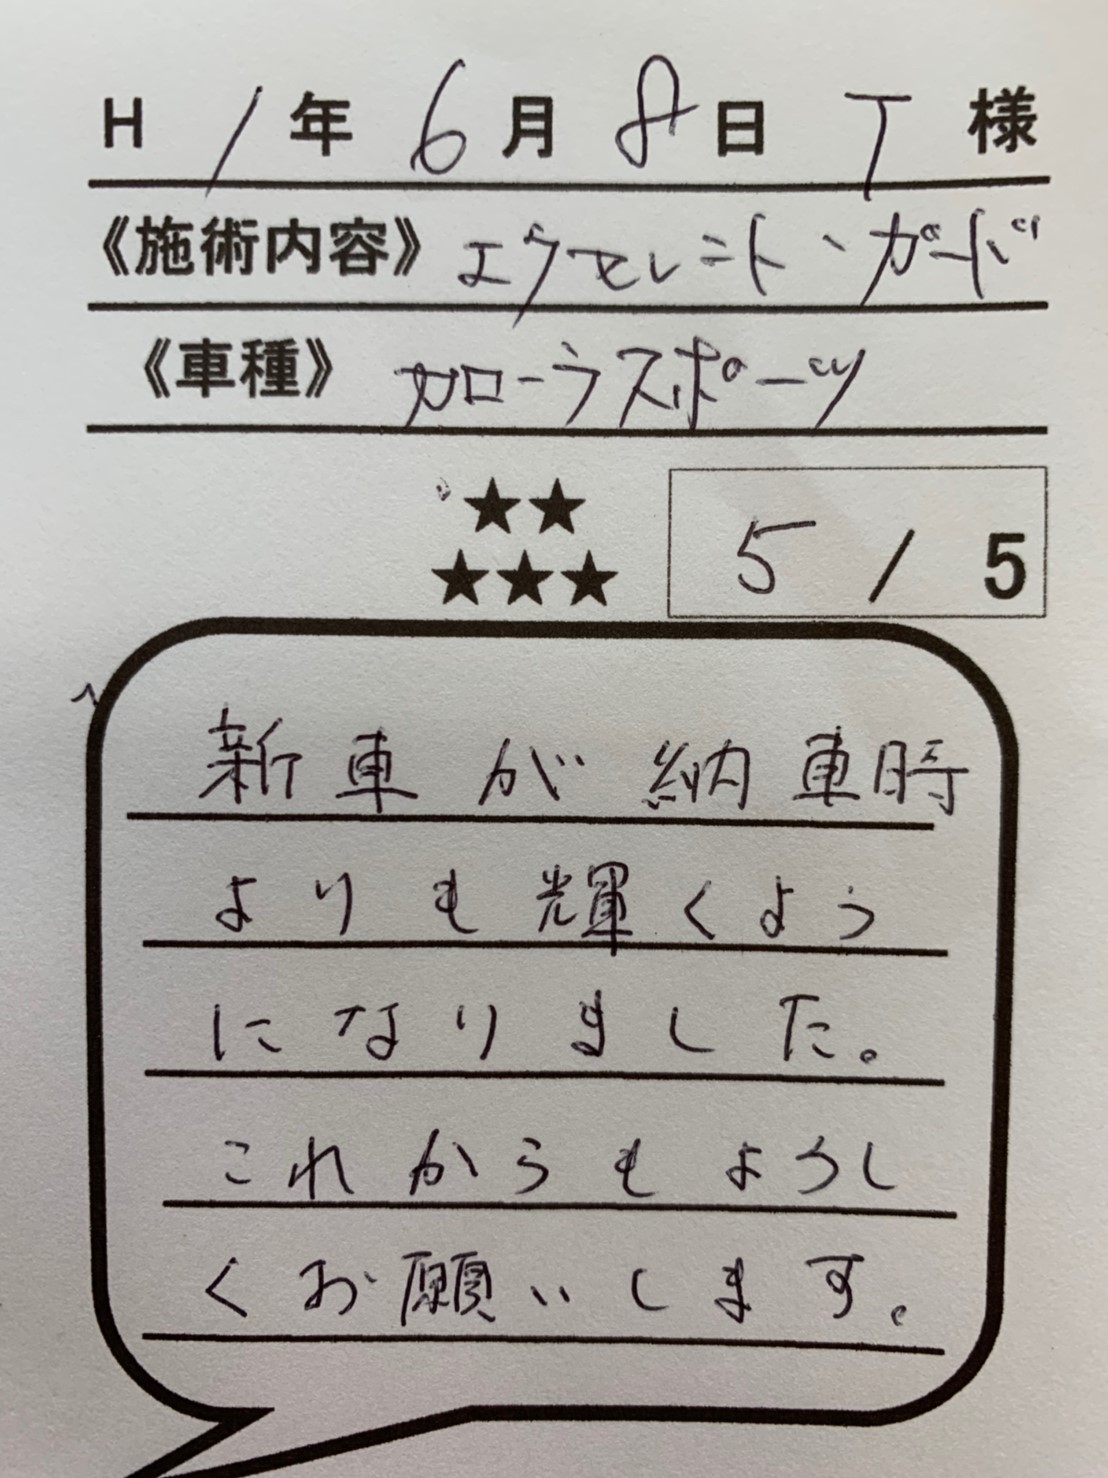 H 1年 6月 8日 T 様
《施術内容》 エクセレント・ガード
《車種》 カローラスポーツ
★★
★★★
5 / 5
新車が納車時
よりも輝くよう
になりました。
これからもよろし
くお願いします。